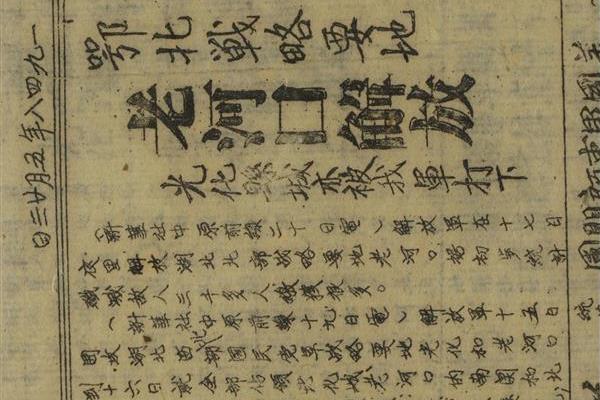 一九四八年五月廿三日
鄂北戦略要地
老河口解放
光化縣城亦被我軍打下
（新華社中原前線二十日電）解放軍在十七日
夜里解放湖北北部战略要地老河。据初步統計
殲战敌人三千多人繳獲很多。
（新華社中原前線十九日電）解放軍十五日
攻湖北西北部國民党軍战略要地光化和老河口
到十六日就全部佔領光化城老河口的南関和北